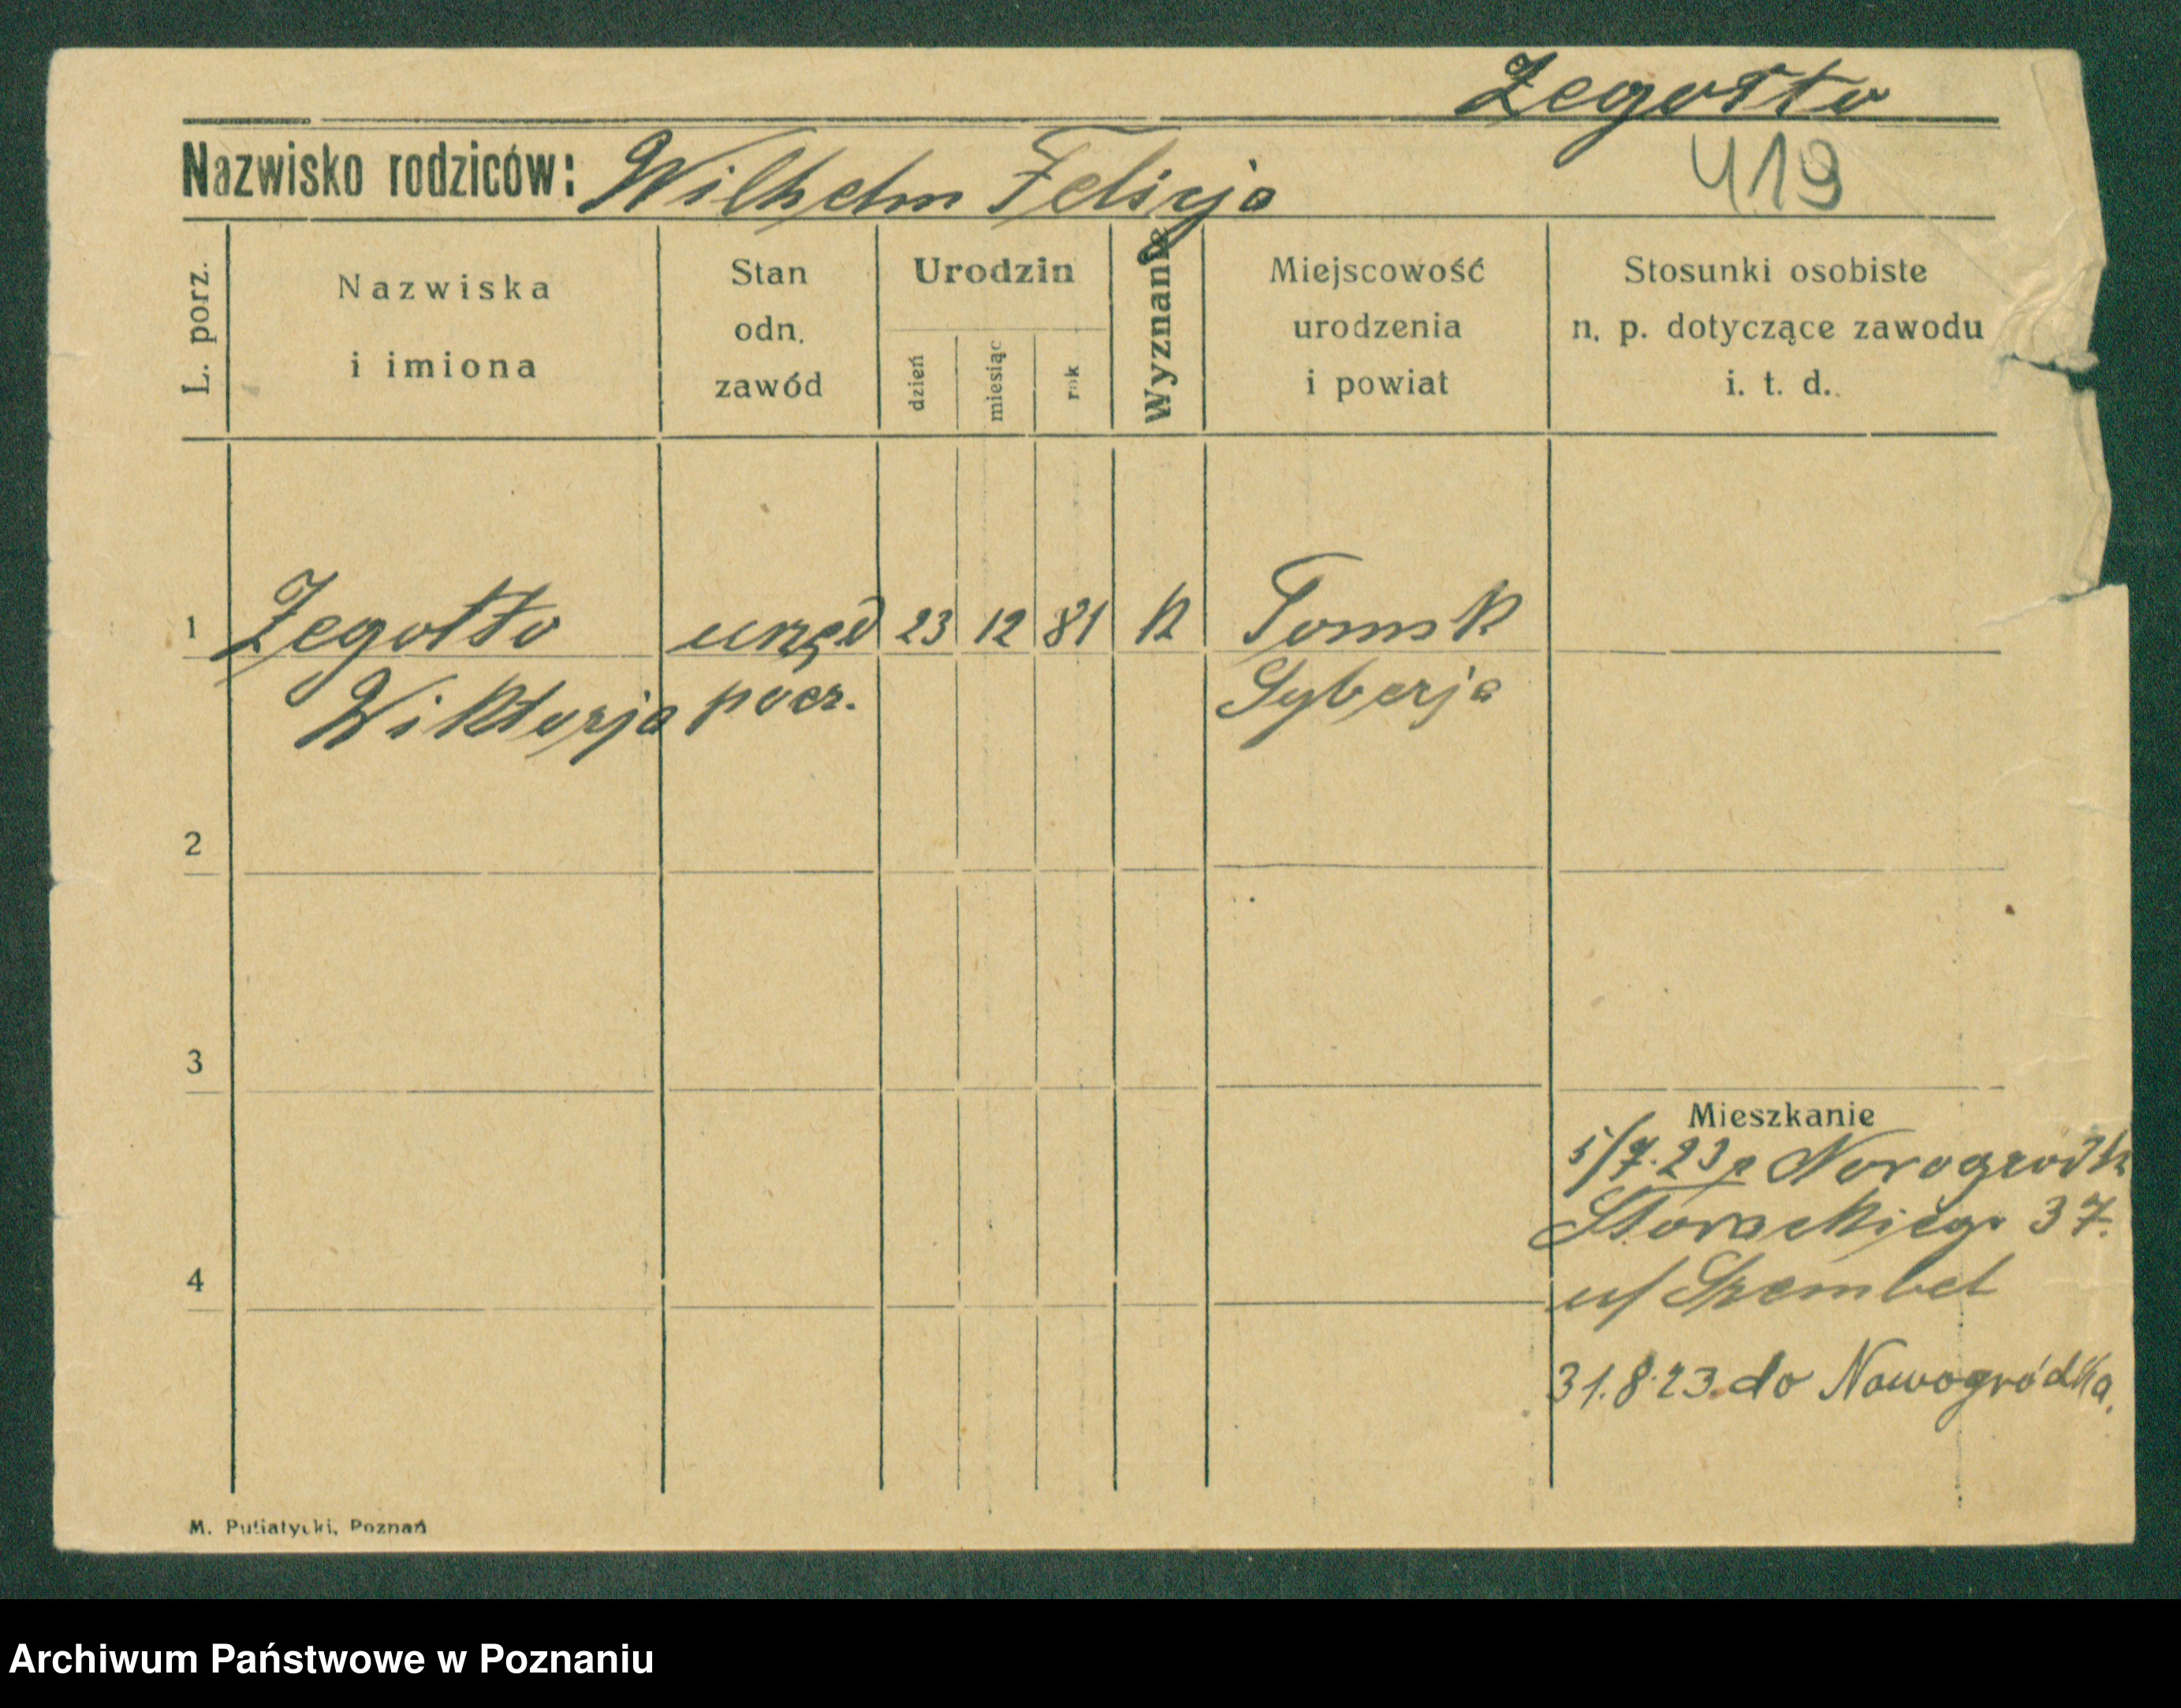 Żegotto
419
Nazwisko rodziców: Wilhelm Felicja
L. porz.
Nazwiska
i imiona
Stan
odn.
zawód
Urodzin
dzień
miesiąc
rok
Wyznanie
Miejscowość
urodzenia
i powiat
Stosunki osobiste
n. p. dotyczące zawodu
i. t. d.
1 Żegotto urzęd 23 12 81 K Tomsk
Wiktorja pocz. Syberja
2
3
Mieszkanie
5/7.23 z Nowogrodk
Słowackiego 37.
4
u/ Szembel
31.8.23. do Nowogródka.
M. Putiatycki, Poznań
Archiwum Państwowe w Poznaniu